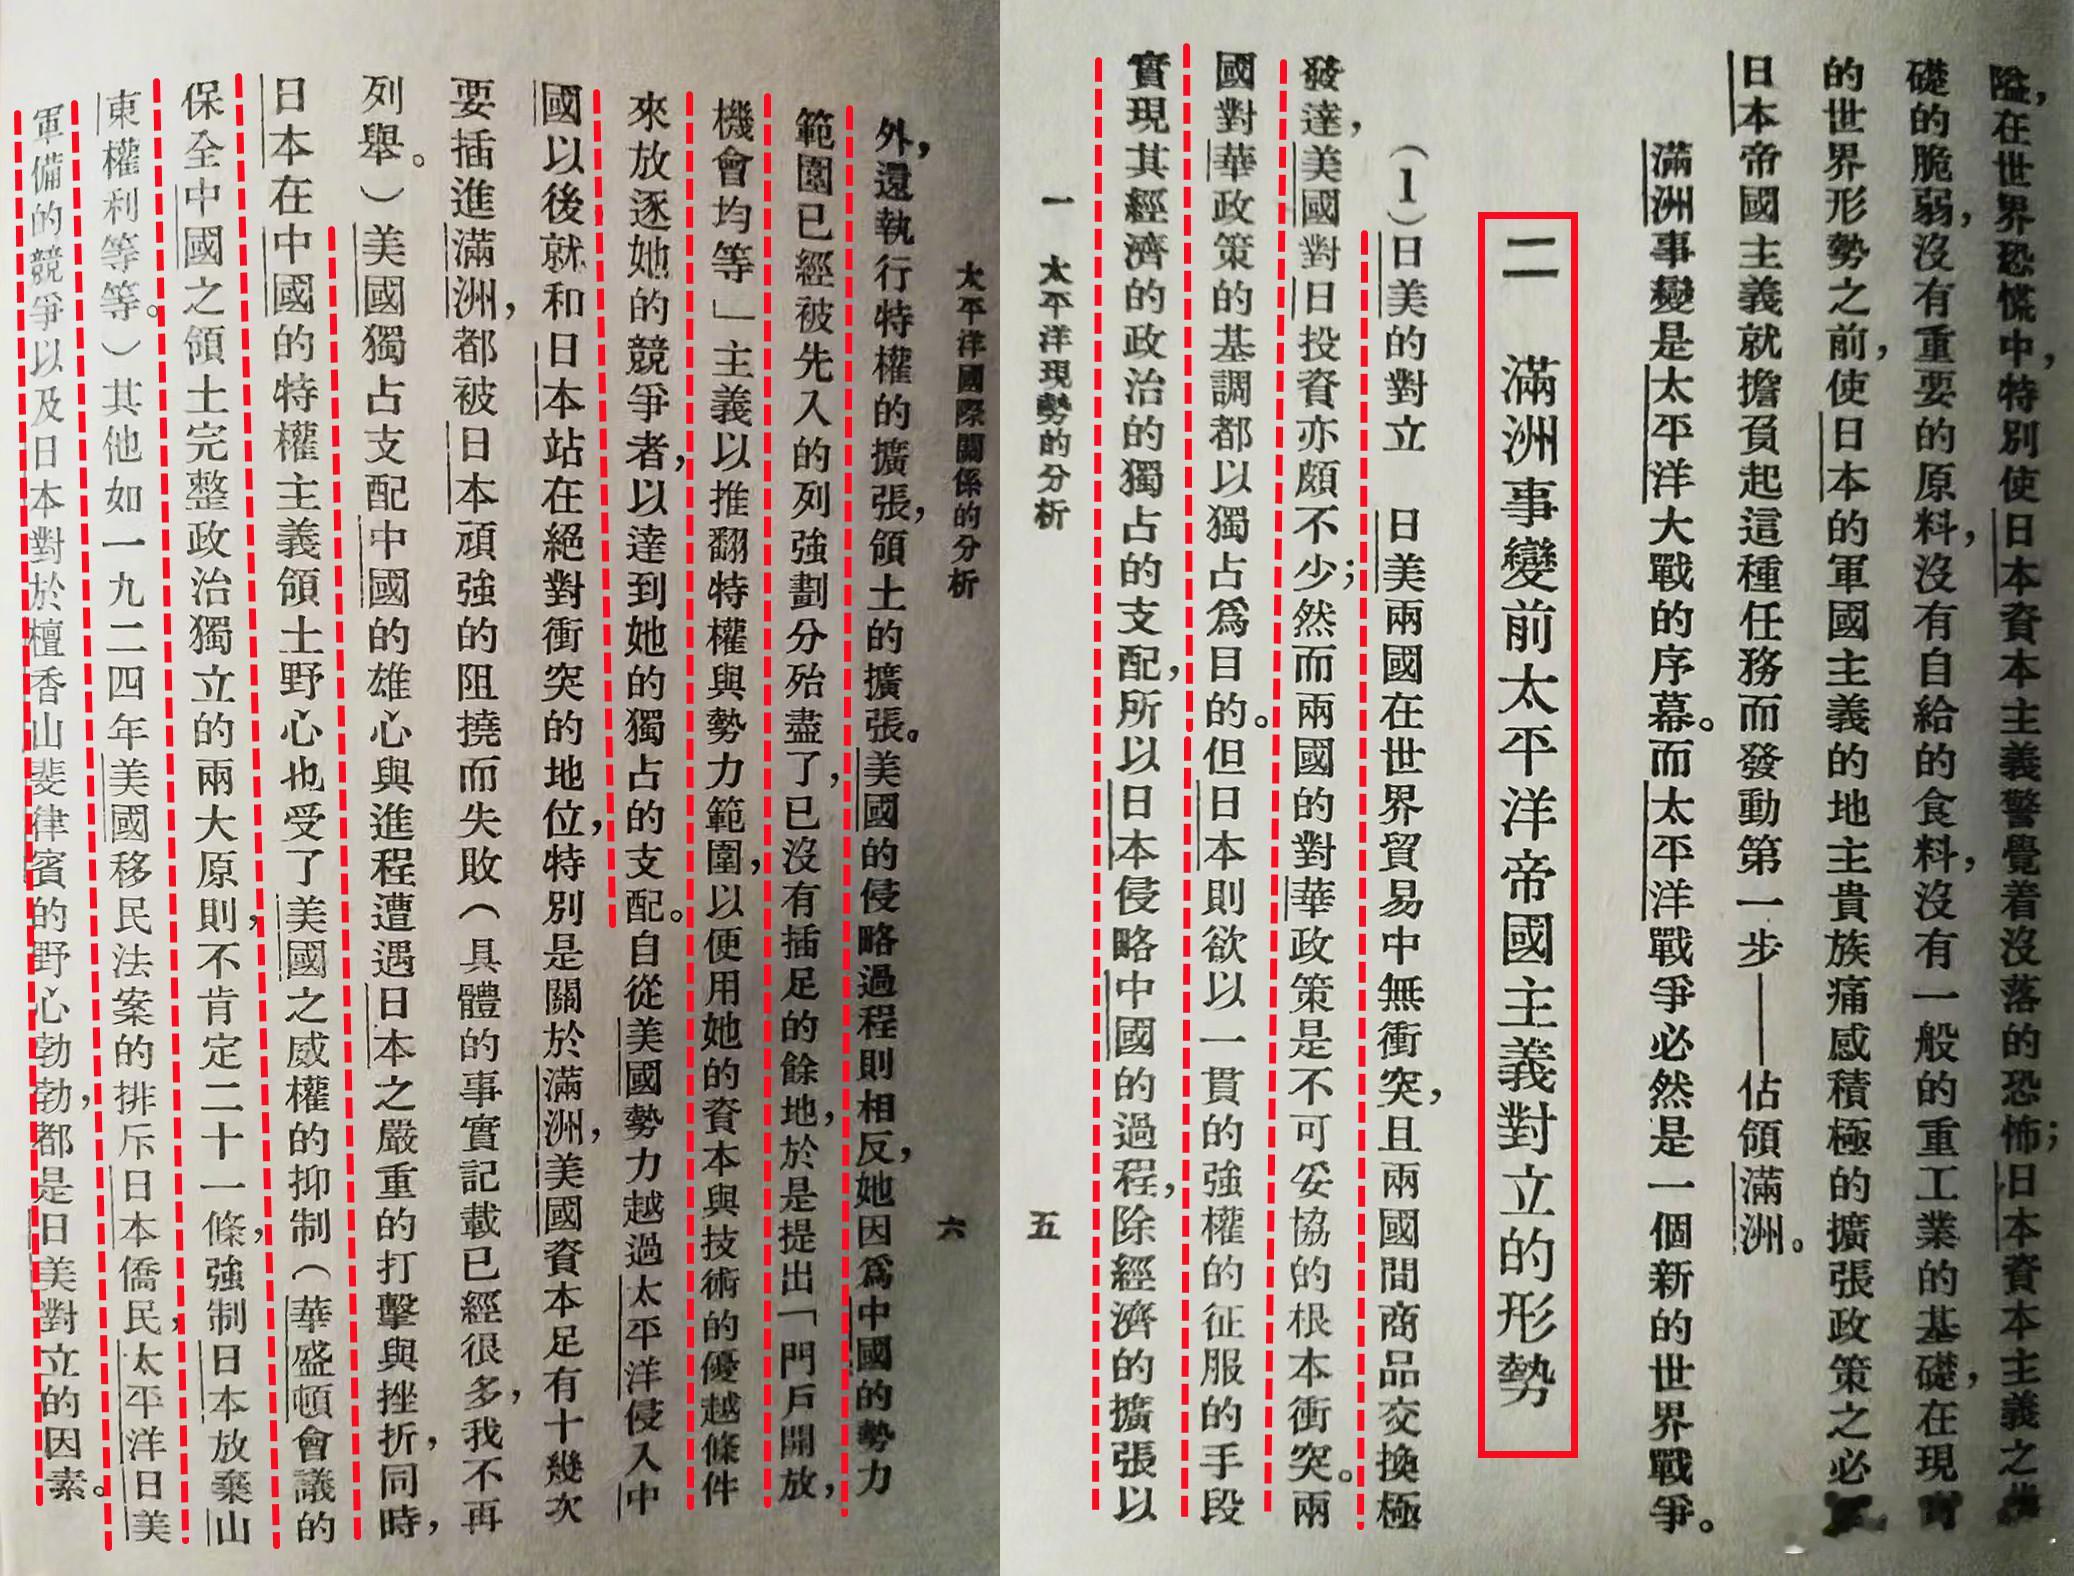 隘，在世界恐慌中，特別使日本資本主義警覺着沒落的恐怖；日本資本主義之
礎的脆弱，沒有重要的原料，沒有自給的食料，沒有一般的重工業的基礎，在現
的世界形勢之前，使日本的軍國主義的地主貴族痛感積極的擴張政策之必
日本帝國主義就擔負起這種任務而發動第一步——佔領滿洲。
滿洲事變是太平洋大戰的序幕。而太平洋戰爭必然是一個新的世界戰爭。
二　滿洲事變前太平洋帝國主義對立的形勢
（1）日美的對立　日美兩國在世界貿易中無衝突，且兩國間商品交換極
發達，美國對日投資亦頗不少；然而兩國的對華政策是不可妥協的根本衝突。兩
國對華政策的基調都以獨占爲目的。但日本則欲以一貫的強權的征服的手段
實現其經濟的政治的獨占的支配，所以日本侵略中國的過程，除經濟的擴張以
一　太平洋現勢的分析　五
太平洋國際關係的分析　六
外，還執行特權的擴張，領土的擴張。美國的侵略過程則相反，她因爲中國的勢力
範圍已經被先入的列強劃分殆盡了，已沒有插足的餘地，於是提出「門戶開放，
機會均等」主義以推翻特權與勢力範圍，以便用她的資本與技術的優越條件
來放逐她的競爭者，以達到她的獨占的支配。自從美國勢力越過太平洋侵入中
國以後就和日本站在絕對衝突的地位，特別是關於滿洲，美國資本足有十幾次
要插進滿洲，都被日本頑強的阻撓而失敗（具體的事實記載已經很多，我不再
列舉。）美國獨占支配中國的雄心與進程遭遇日本之嚴重的打擊與挫折，同時，
日本在中國的特權主義領土野心也受了美國之威權的抑制（華盛頓會議的
保全中國之領土完整政治獨立的兩大原則，不肯定二十一條，強制日本放棄山
東權利等等。）其他如一九二四年美國移民法案的排斥日本僑民，太平洋日美
軍備的競爭以及日本對於檀香山斐律賓的野心勃勃，都是日美對立的因素。